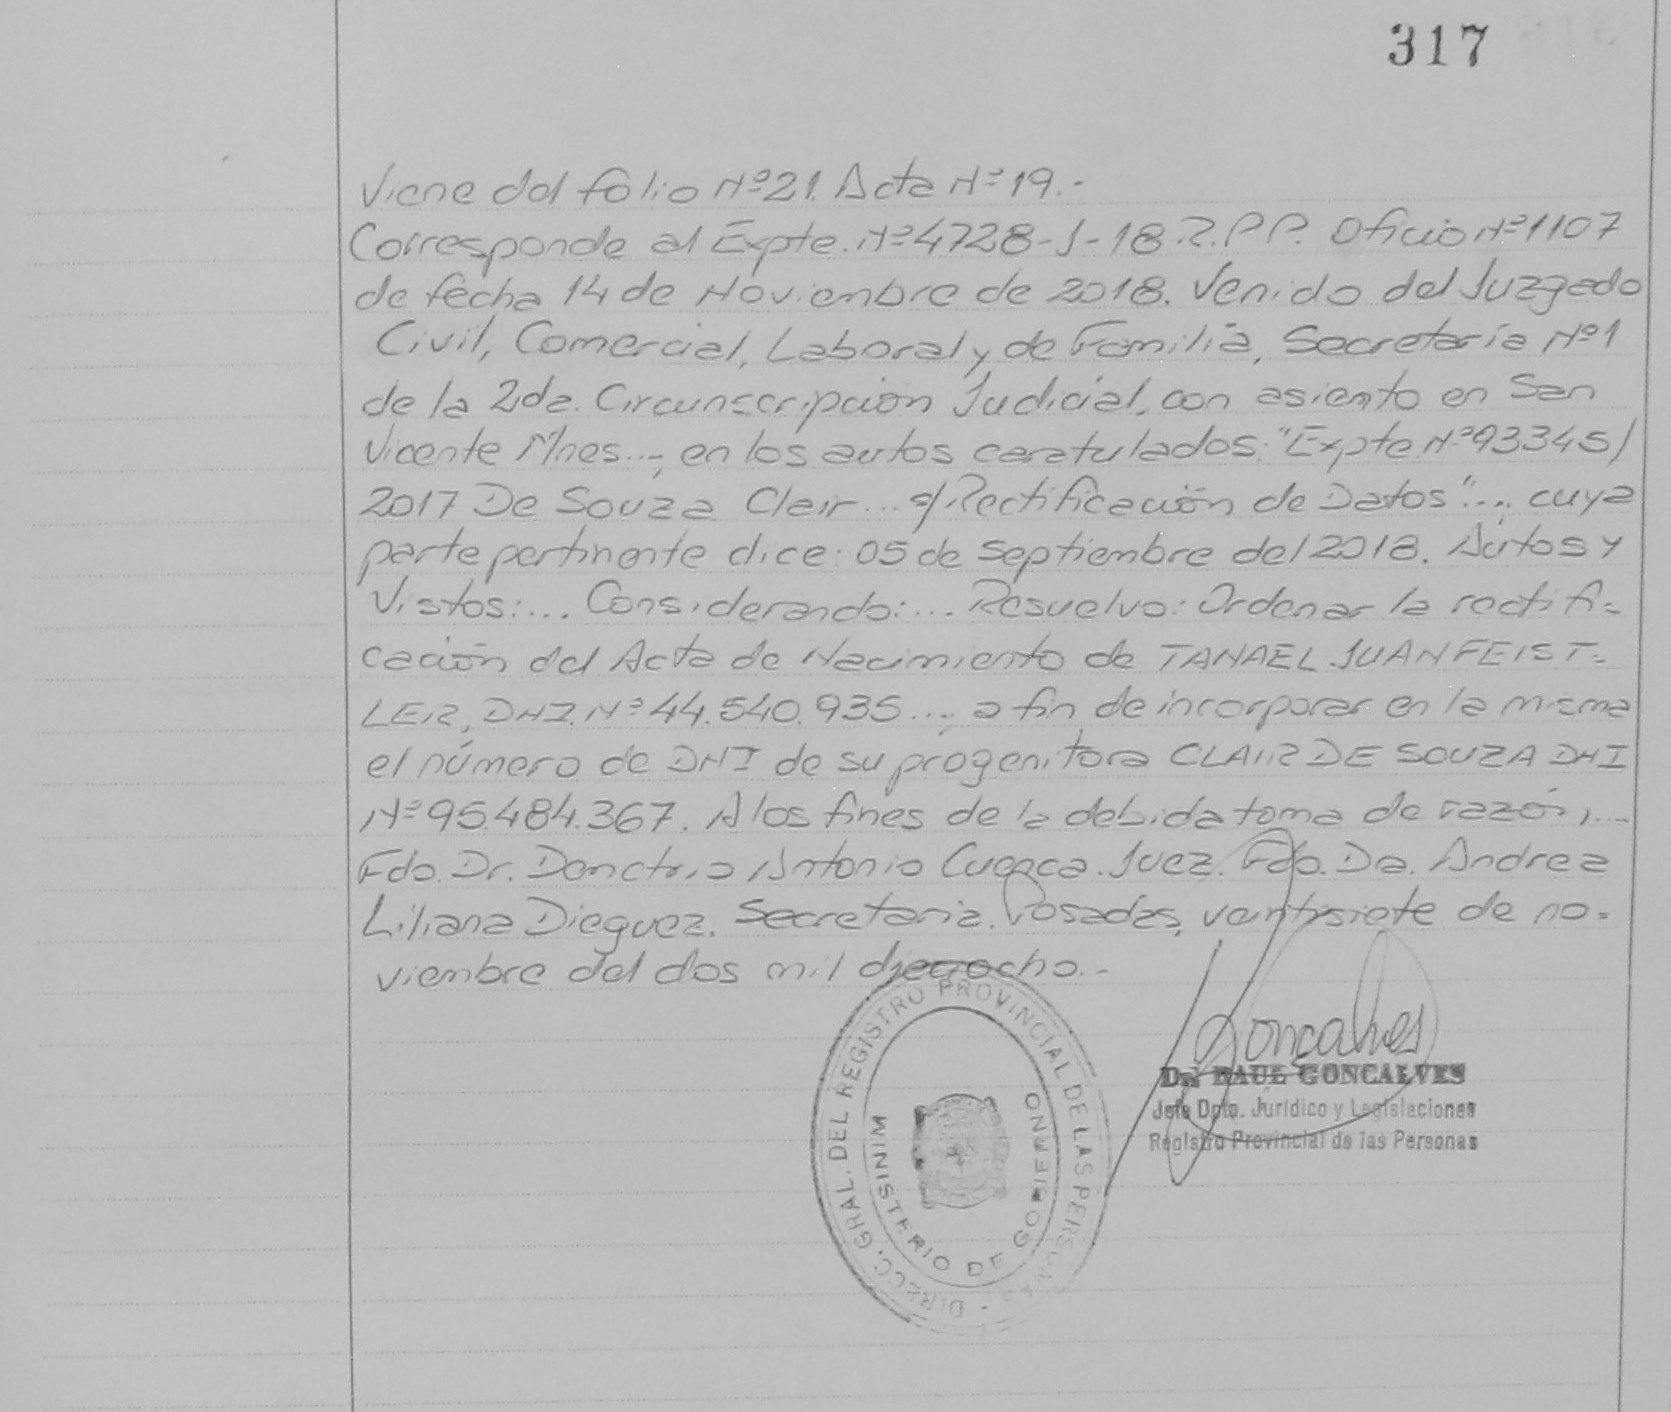 317
Viene del folio Nº21. Acta Nº19.-
Corresponde al Expte. Nº4728-J-18 R.P.P. Oficio Nº1107
de fecha 14 de Noviembre de 2018. Venido del Juzgado
Civil, Comercial, Laboral y de Familia, Secretaría Nº1
de la 2da. Circunscripción Judicial, con asiento en San
Vicente Mnes...; en los autos caratulados: "Expte. Nº93345/
2017 De Souza Clair... s/Rectificación de Datos"...; cuya
parte pertinente dice: 05 de septiembre del 2018. Autos y
Vistos:... Considerando:... Resuelvo: Ordenar la rectifi-
cación del Acta de Nacimiento de TANAEL JUAN FEIST-
LER, DNI. Nº44.540.935...; a fin de incorporar en la misma
el número de DNI de su progenitora CLAIR DE SOUZA DNI
Nº95.484.367. A los fines de la debida toma de razón,...
Fdo. Dr. Demetrio Antonio Cuenca. Juez. Fdo. Da. Andrea
Liliana Dieguez. Secretaria. Posadas, veintisiete de no-
viembre del dos mil dieciocho.-
DIRECC. GRAL. DEL REGISTRO PROVINCIAL DE LAS PERSONAS
MINISTERIO DE GOBIERNO
Goncalves
Dr. RAUL GONCALVES
Jefe Dpto. Jurídico y Legislaciones
Registro Provincial de las Personas